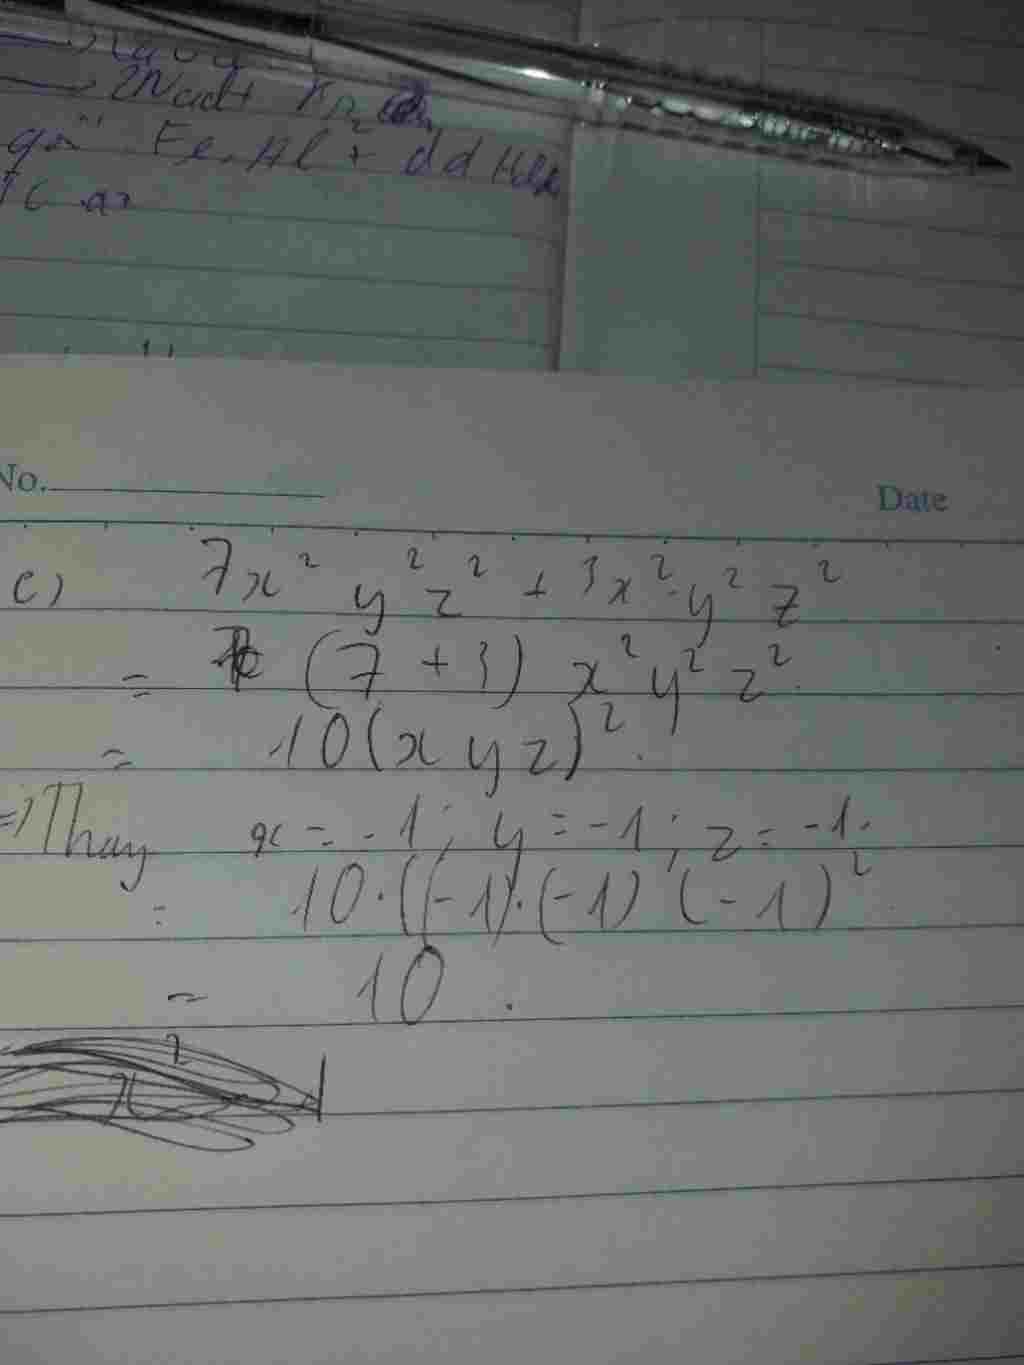 2Na
Fe, Al + dd
No.
Date
c) 7x² y² z² + 3x² y² z²
= (7 + 3) x² y² z²
= 10(x y z)².
=> Thay x = -1; y = -1; z = -1.
= 10.((-1).(-1) (-1)²
= 10.